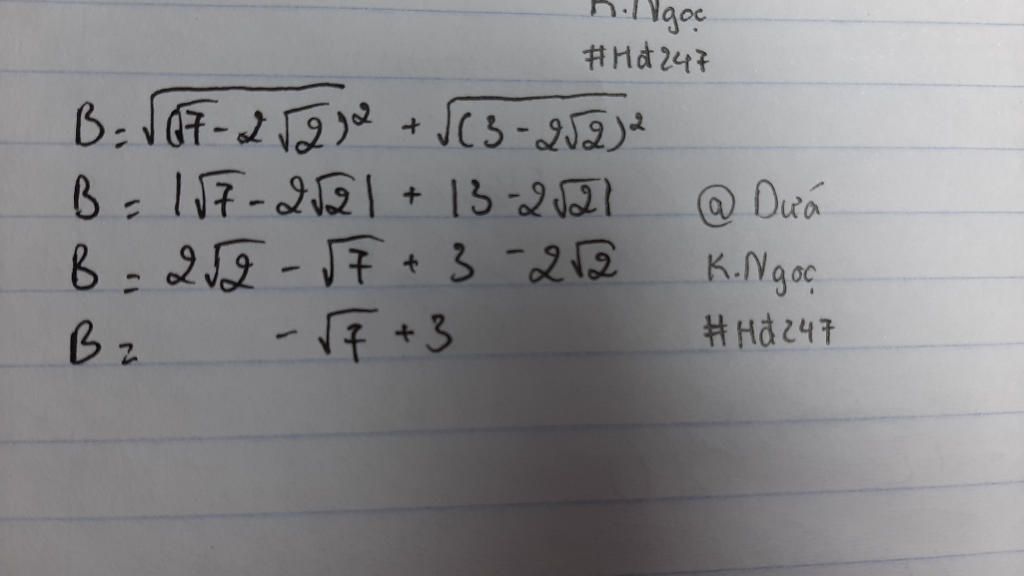 K.Ngọc
#Hđ247
B = √(√7 - 2√2)² + √(3 - 2√2)²
B = |√7 - 2√2| + |3 - 2√2| @ Dứá
B = 2√2 - √7 + 3 - 2√2 K.Ngọc
B = - √7 + 3 #Hđ247